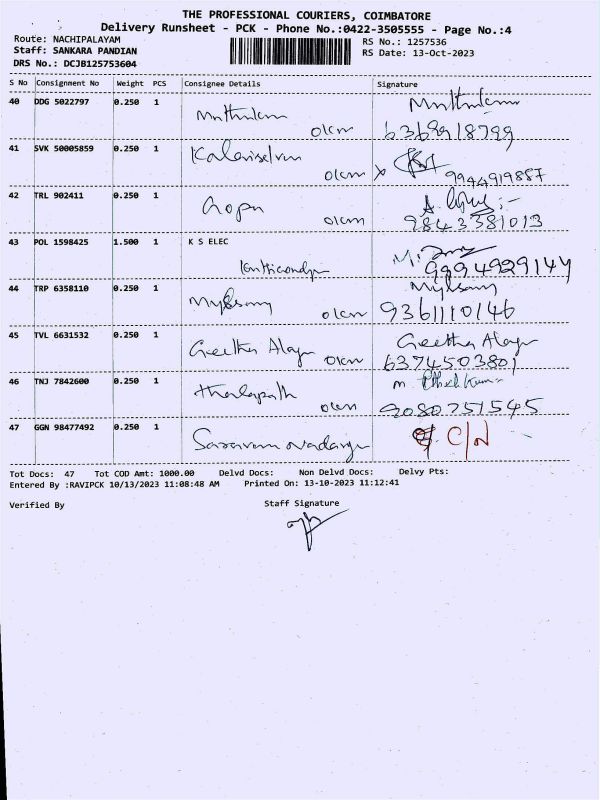 THE PROFESSIONAL COURIERS, COIMBATORE
Delivery Runsheet - PCK - Phone No.:0422-3505555 - Page No.:4
Route: NACHIPALAYAM
RS No.: 1257536
Staff: SANKARA PANDIAN
RS Date: 13-Oct-2023
DRS No.: DCJB125753604
S No Consignment No Weight PCS Consignee Details Signature
40 DDG 5022797 0.250 1
6369918799
41 SVK 50005859 0.250 1 Kalaiselvan
9944919887
42 TRL 902411 0.250 1 Gopu
9843381013
43 POL 1598425 1.500 1 K S ELEC
9994929144
44 TRP 6358110 0.250 1
9361110146
45 TVL 6631532 0.250 1 Geetha
Geetha
6374503801
46 TNJ 7842600 0.250 1
9080751545
47 GGN 98477492 0.250 1
C/N
Tot Docs: 47 Tot COD Amt: 1000.00 Delvd Docs: Non Delvd Docs: Delvy Pts:
Entered By :RAVIPCK 10/13/2023 11:08:48 AM Printed On: 13-10-2023 11:12:41
Verified By Staff Signature